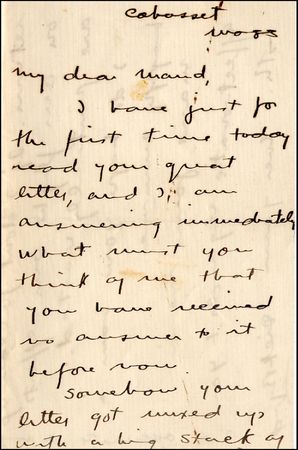 Cohasset
Mass
My dear Maud,
I have just for
the first time today
read your great
letter, and I, am
answering immediately
What must you
think of me that
you have received
no answer to it
before now.
Somehow your
letter got mixed up
with a big stack of